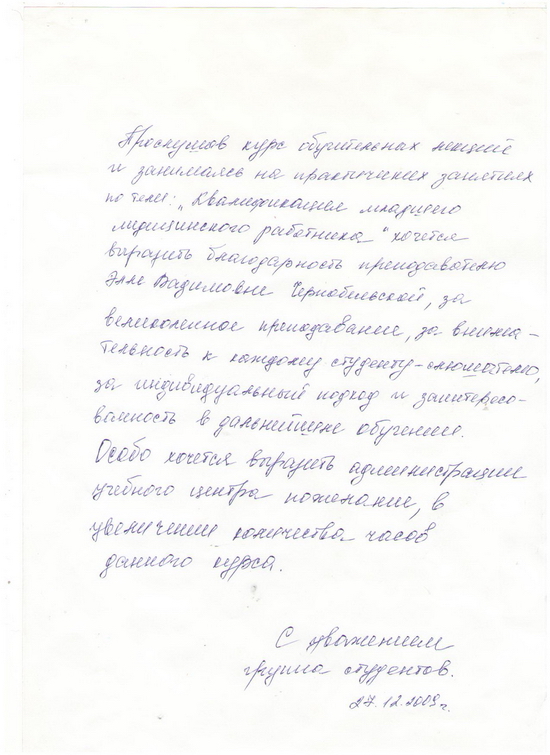 Прослушав курс обучительных лекций
и занимаясь на практических занятиях
по теме: „Квалификация младшего
медицинского работника" хочется
выразить благодарность преподавателю
Элле Вадимовне Чернобельской, за
великолепное преподавание, за внима-
тельность к каждому студенту-слушателю,
за индивидуальный подход и заинтересо-
ванность в дальнейшем обучении.
Особо хочется выразить администрации
учебного центра пожелание, в
увеличении количества часов
данного курса.
С уважением
группа студентов.
27.12.2009 г.